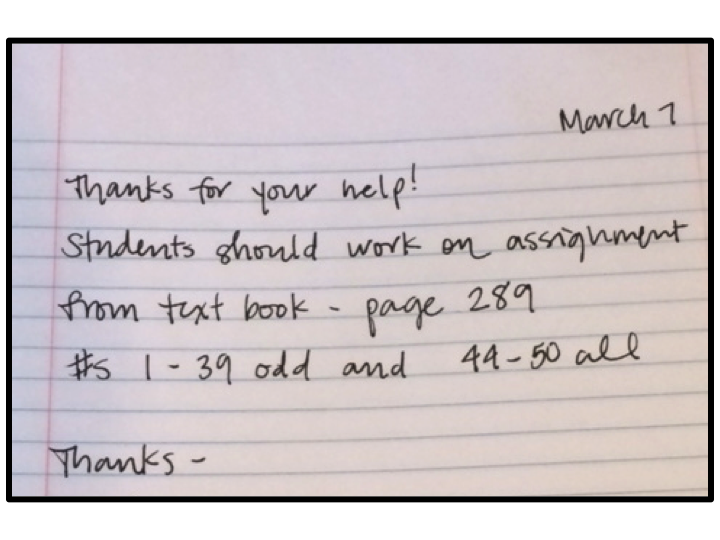 March 7
Thanks for your help!
Students should work on assignment
from text book - page 289
#s 1 - 39 odd and 44-50 all
Thanks -